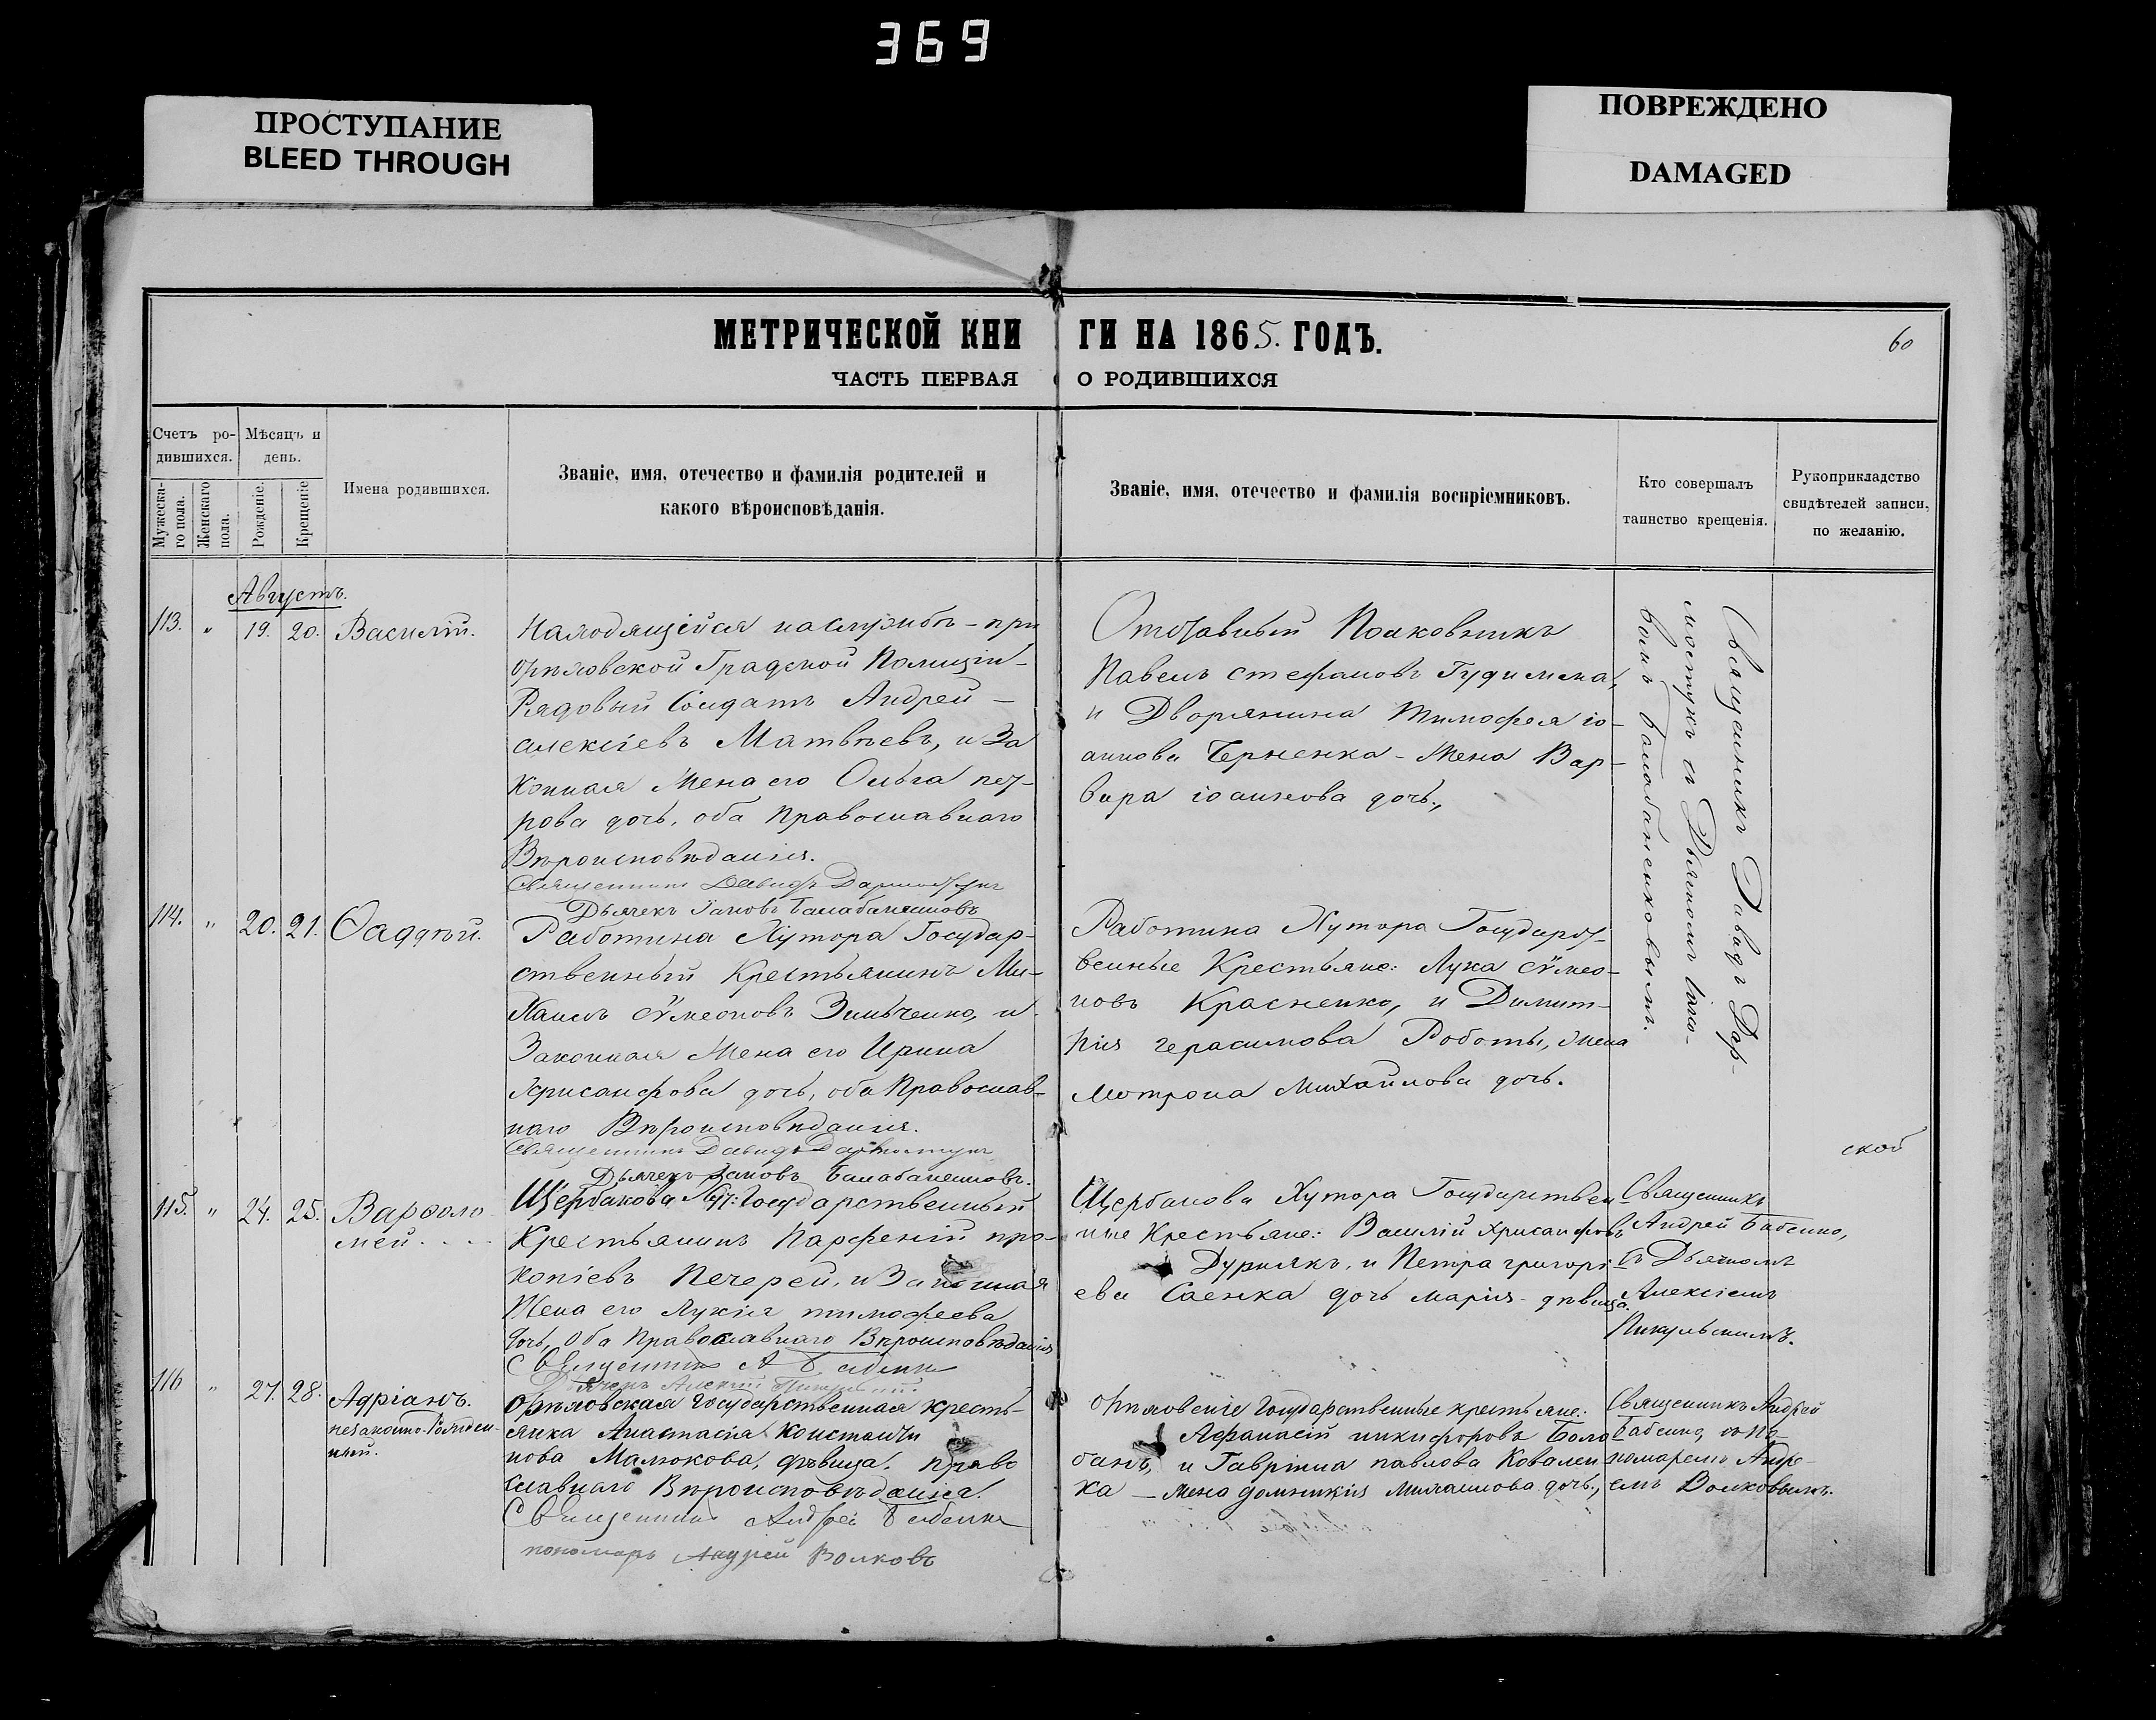 369
ПРОСТУПАНИЕ
BLEED THROUGH
ПОВРЕЖДЕНО
DAMAGED
МЕТРИЧЕСКОЙ КНИ ГИ НА 1865. ГОДЪ.
60
ЧАСТЬ ПЕРВАЯ О РОДИВШИХСЯ
Счетъ ро-
дившихся.
Мужеска-
го пола.
Женскаго
пола.
Мѣсяцъ и
день.
Рожденіе.
Крещеніе
Имена родившихся.
Званіе, имя, отечество и фамилія родителей и
какого вѣроисповѣданія.
Званіе, имя, отечество и фамилія воспріемниковъ.
Кто совершалъ
таинство крещенія.
Рукоприкладство
свидѣтелей записи,
по желанію.
Августъ.
113. " 19. 20. Василій.
Находящійся на службѣ - при
Орѣховской Градской Полиціи -
Рядовый Солдатъ Андрей -
алексіевъ Матвѣевъ, и За
конная Жена его Ольга пет-
рова дочь, оба Православнаго
Вѣроисповѣданія.
Священникъ Давидъ
Дьячекъ Іаковъ
Отставный Полковникъ
Павелъ стефановъ Гудимена,
и Дворянина Тимофея іо-
аннова Черненка - Жена Вар-
вара іоаннова дочь.,
Священникъ Давидъ Дар-
мостукъ съ Дьячкомъ Іако-
вомъ Балабаненковымъ.
114. " 20. 21. Ѳаддѣй.
Работина Хутора Государ-
ственный Крестьянинъ Ми-
хаилъ сѵмеоновъ Зинченко, и
Законная Жена его Ирина
Хрисанфова дочь, оба Православ-
наго Вѣроисповѣданія.
Священникъ Давидъ
Дьячекъ Іаковъ
Работина Хутора Государст-
венные Крестьяне: Лука сѵмео-
новъ Красненко, и Димит-
рія герасимова Роботы, жена
Мотрона Михайлова дочь.
ской
115. " 24. 25. Варѳоло
мей.
Щербакова Хут: Государственный
Крестьянинъ Парфеній про-
копіевъ Печерей, и Законная
Жена его Лукія тимофеева
дочь, Оба Православнаго Вѣроисповѣданія
Священникъ А Бабенко
Дьячекъ Алексій
Щербакова Хутора Государствен
ные Крестьяне: Василій Хрисанфовъ
Дурнякъ, и Петра григорі-
ева Саенка дочь марія - дѣвица.
Священникъ
Андрей Бабенко,
съ Дьячкомъ
Алексіемъ
116 " 27. 28. Адріанъ.
незаконно-рожден-
ный.
Орѣховская Государственная кресть-
янка Анастасія Константи
нова Малюкова, дѣвица. Право
славнаго Вѣроисповѣданія.
Священникъ Андрей Бабенко
пономарь Андрей Волковъ
Орѣховскіе Государственные крестьяне:
Афанасій никифоровъ Бала
банъ, и Гавріила павлова Ковален
ка - жена домникія Михайлова дочь.,
Священникъ Андрей
Бабенко, съ По-
номаремъ Андре-
емъ Волковымъ.